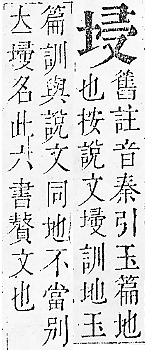 埐
舊註音秦引玉篇地
也按說文埐訓地玉
篇訓與說文同地不當別
立埐名此六書贅文也